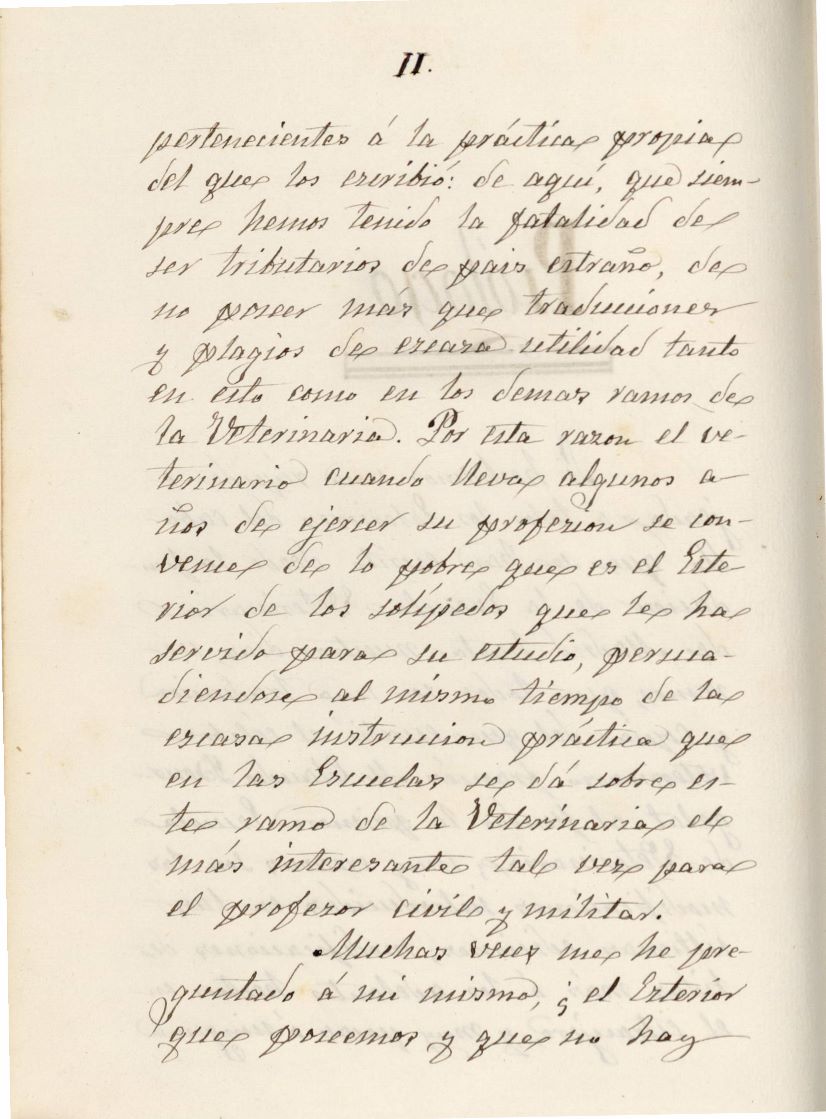 II.
pertenecientes á la práctica propia
del que los escribió: de aquí, que siem-
pre hemos tenido la fatalidad de
ser tributarios de pais estraño, de
no poseer más que traducciones
y plagios de escasa utilidad tanto
en esto como en los demas ramos de
la Veterinaria. Por esta razon el ve-
terinario cuando lleva algunos a-
ños de ejercer su profesion se con-
vence de lo pobre que es el Este-
rior de los solípedos que le ha
servido para su estudio, persua-
diendose al mismo tiempo de la
escasa instruccion práctica que
en las Escuelas se dá sobre es-
te ramo de la Veterinaria el
más interesante tal vez para
el profesor civil y militar.
Muchas veces me he pre-
guntado á mi mismo, ¿ el Exterior
que poseemos y que no hay